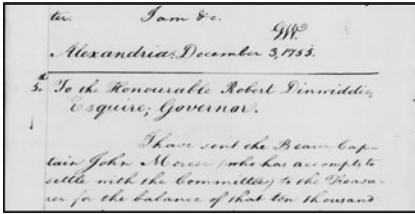 ter. I am &c.
GW.
Alexandria, December 3, 1755.
5.th To the Honourable Robert Dinwiddie,
Esquire; Governor.
I have sent the Bearer Cap-
tain John Mercer (who has accompts to
settle with the Committee) to the Treasu-
rer for the balance of that ten thousand